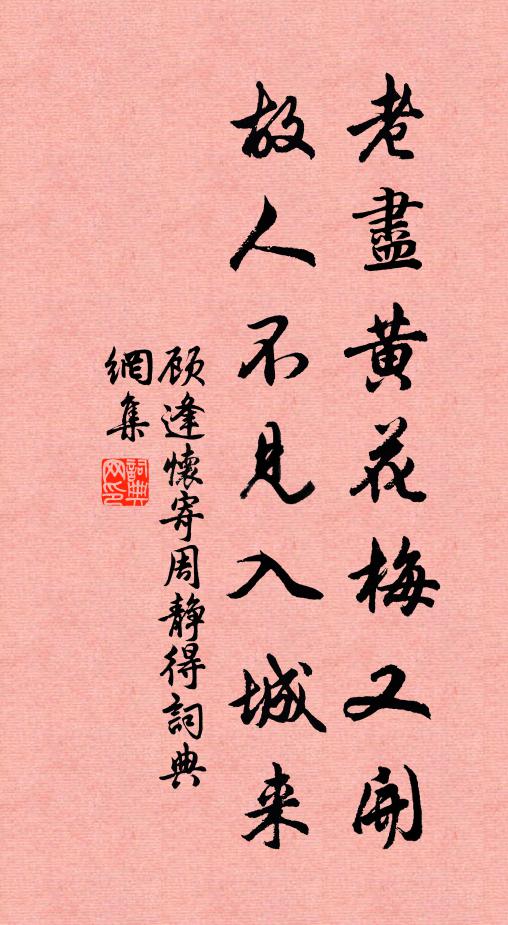 老盡黄花梅又開
故人不見入城来
顾逢懷寄周靜得詞典
網集
詞典网印